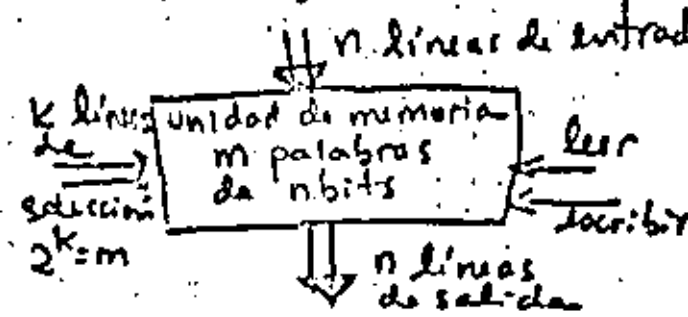 n líneas de entrad
k líneas
de
selección
2^k=m
unidad de memoria
m palabras
de n bits
leer
escribir
n líneas
de salida